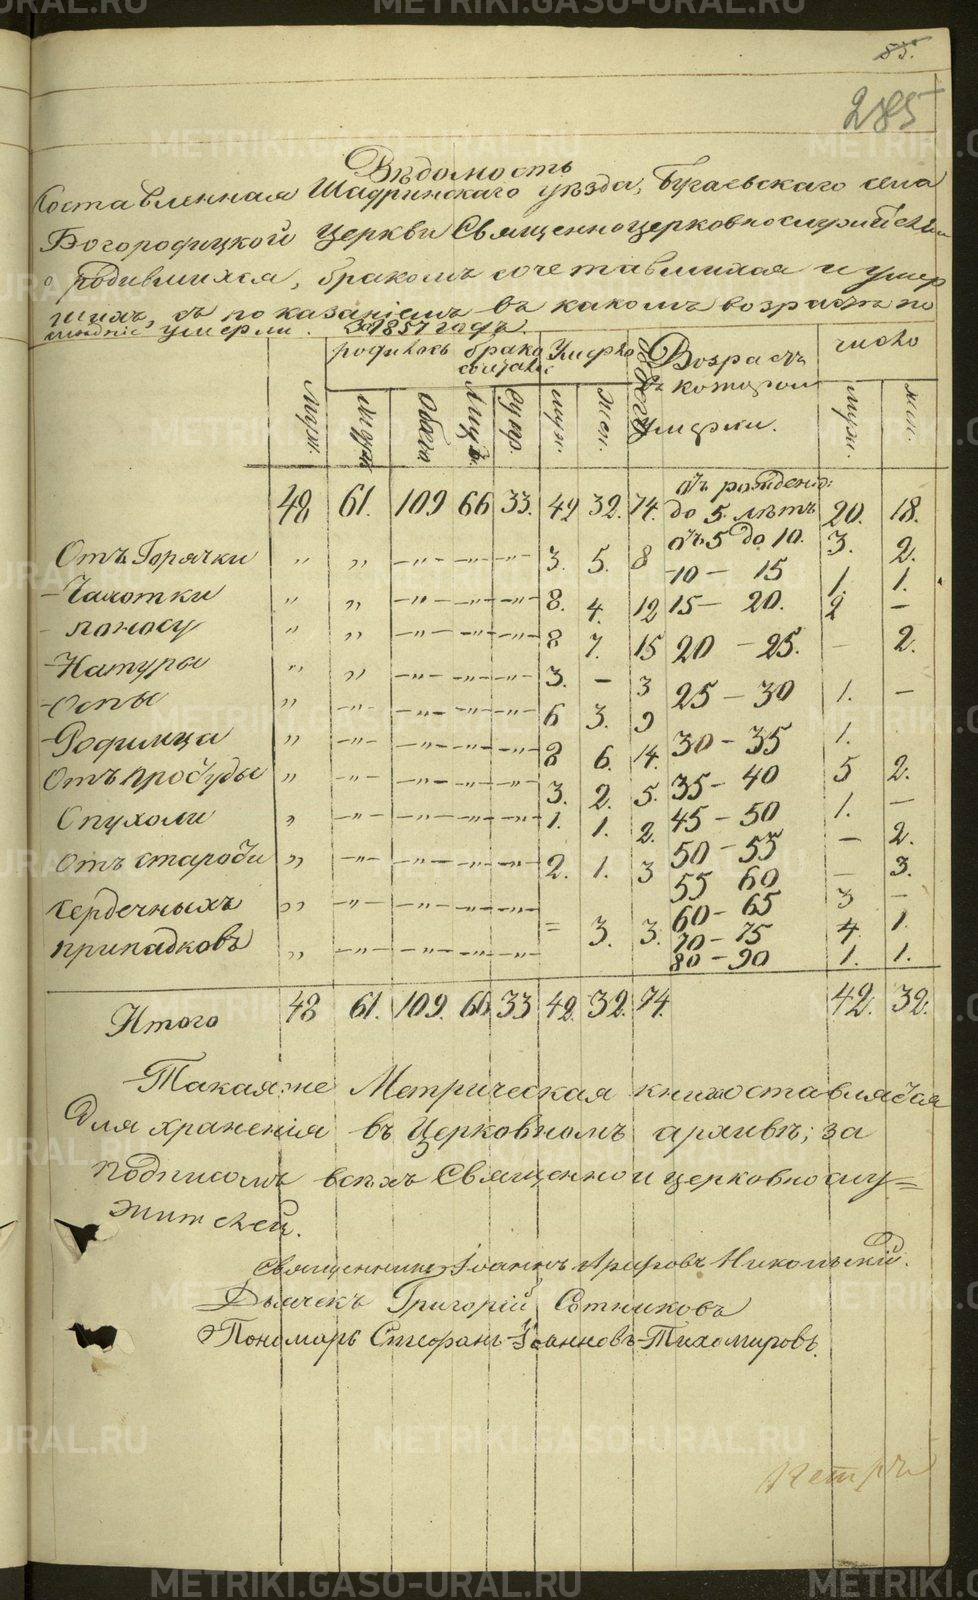 85.
285
Вѣдомость
Составленная Шадринскаго уѣзда, Бугаевскаго села
Богородицкой Церкви Священноцерковнослужительми
о родившихся, бракомъ сочетавшихся и умер
шихъ, съ показаніемъ въ какомъ возрастѣ по
умерли. За 1857 годъ.
родилось брако Умерло Возрастъ число
въ которомъ
Умерли.
Муж. Обаго Лицъ. Супр. муж. жен. муж. жен.
48 61. 109 66 33. 42 32. 74. отъ рожденія до 5. лѣтъ 20. 18.
Отъ Горячки „ „ —„— —„— —„— 3. 5. 8 отъ 5 до 10. 3. 2.
10 — 15 1. 1.
-Чахотки „ „ —„— —„— —„— 8. 4. 12 15 — 20. 2 —
- поносу „ „ —„— —„— —„— 8 7. 15 20 — 25. — 2.
-Натуры „ „ —„— —„— —„— 3. — 3 25 — 30 1. —
-Оспы „ —„— —„— —„— —„— 6 3. 9 30 — 35 1.
-Родимца „ —„— —„— —„— —„— 8 6. 14. 35 — 40 5 2.
Отъ простуды „ —„— —„— —„— —„— 3. 2. 5. 45 — 50 1. —
Опухоли „ —„— —„— —„— —„— 1. 1. 2. 50 — 55 — 2.
Отъ старости „ —„— —„— —„— —„— 2. 1. 3 55 60 — 3.
Сердечныхъ „ —„— —„— —„— —„— = 3. 3. 60 — 65 3 —
70 — 75 4. 1.
припадковъ „ —„— —„— —„— —„— 80 — 90 1. 1.
Итого 48 61. 109. 66 33 42. 32. 74. 42. 32.
Такая же Метрическая книга оставлена
Для храненія въ Церковномъ архивѣ; за
подписомъ всѣхъ Священно и церковнослу=
жителей.
Священникъ Іоаннъ Никольскій.
Дьячекъ Григорій Сотниковъ
Пономарь Стефанъ Іоанновъ Тихомировъ.
METRIKI.GASO-URAL.RU